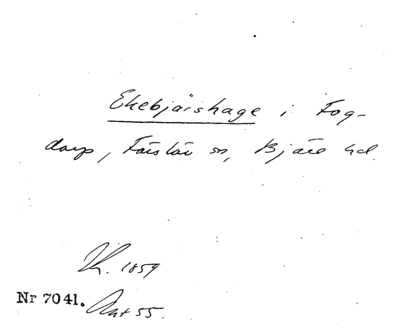 Ekebjärshage i Fog-
darp, Förslöv sn, Bjäre hd.
K. 1859
Nr 7041. Ant 55.